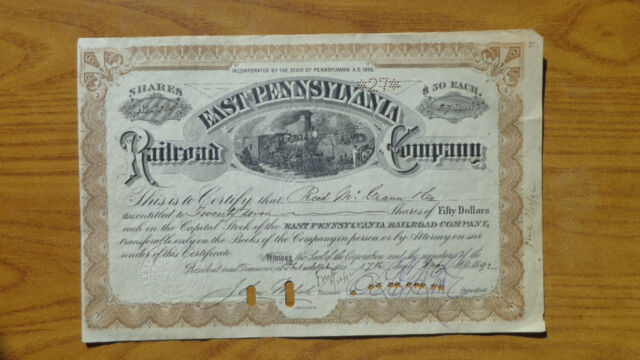 INCORPORATED BY THE STATE OF PENNSYLVANIA A.D. 1856.
SHARES
$50 EACH.
*27*
27 Shares
EAST PENNSYLVANIA
Railroad Company
This is to Certify that Reed Mc Grann
is entitled to Twenty seven Shares of Fifty Dollars
each in the Capital Stock of the EAST PENNSYLVANIA RAILROAD COMPANY,
transferable only on the Books of the Company in person or by Attorney on sur-
render of this Certificate.
Witness the Seal of the Corporation and the signatures of the
President and Treasurer at Philadelphia this 17th day of 1892
Treasurer
President